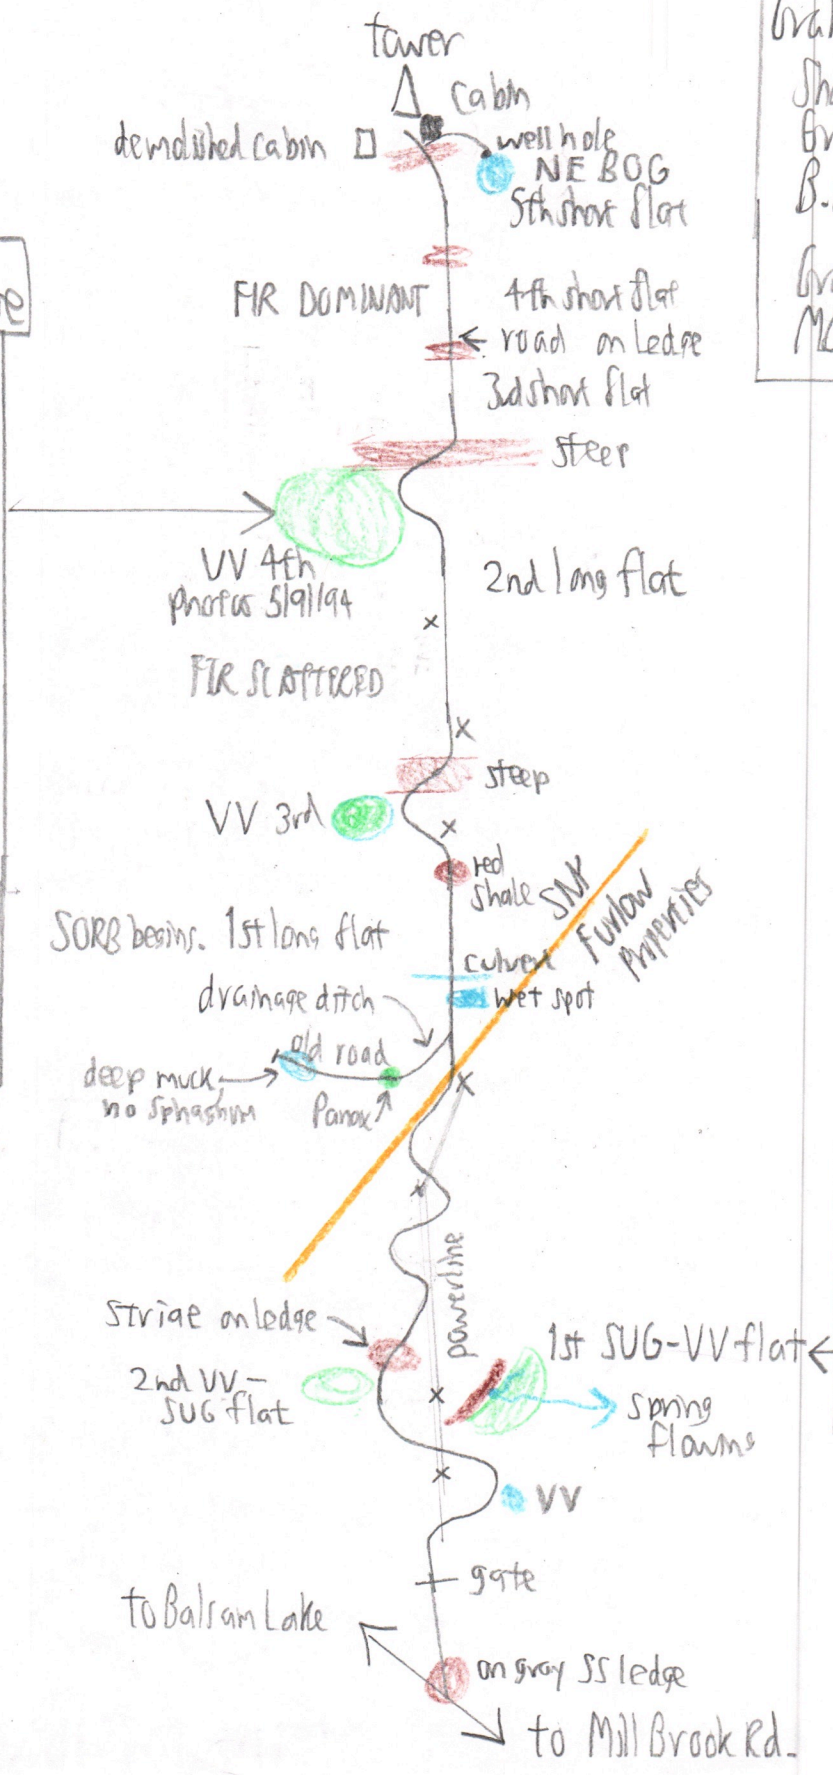 tower
cabin
demolished cabin
well hole
NE BOG
5th short flat
FIR DOMINANT
4th short flat
road on ledge
3rd short flat
steep
VV 4th
photos 5/9/94
2nd long flat
FIR SCATTERED
steep
VV 3rd
red
shale
SNK
Furlow
Properties
SORB begins. 1st long flat
culvert
drainage ditch
wet spot
old road
deep muck
no sphagnum
Panax
powerline
striae on ledge
1st SUG-VV flat
2nd VV-
SUG flat
spring
flowing
VV
gate
to Balsam Lake
on gray SS ledge
to Mill Brook Rd.